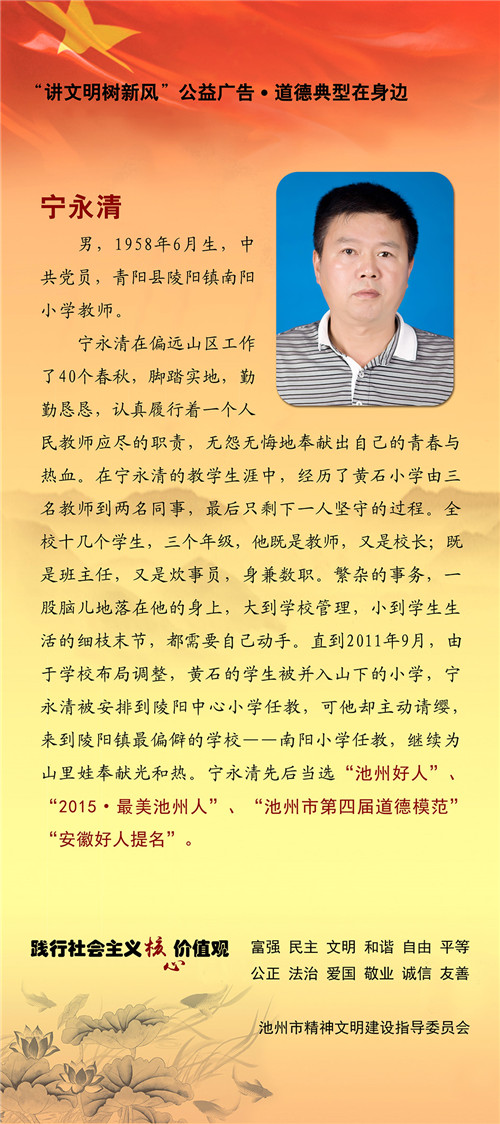 “讲文明树新风”公益广告·道德典型在身边
宁永清
男，1958年6月生，中
共党员，青阳县陵阳镇南阳
小学教师。
宁永清在偏远山区工作
了40个春秋，脚踏实地，勤
勤恳恳，认真履行着一个人
民教师应尽的职责，无怨无悔地奉献出自己的青春与
热血。在宁永清的教学生涯中，经历了黄石小学由三
名教师到两名同事，最后只剩下一人坚守的过程。全
校十几个学生，三个年级，他既是教师，又是校长；既
是班主任，又是炊事员，身兼数职。繁杂的事务，一
股脑儿地落在他的身上，大到学校管理，小到学生生
活的细枝末节，都需要自己动手。直到2011年9月，由
于学校布局调整，黄石的学生被并入山下的小学，宁
永清被安排到陵阳中心小学任教，可他却主动请缨，
来到陵阳镇最偏僻的学校——南阳小学任教，继续为
山里娃奉献光和热。宁永清先后当选“池州好人”、
“2015·最美池州人”、“池州市第四届道德模范”
“安徽好人提名”。
践行社会主义核心价值观
富强 民主 文明 和谐 自由 平等
公正 法治 爱国 敬业 诚信 友善
池州市精神文明建设指导委员会